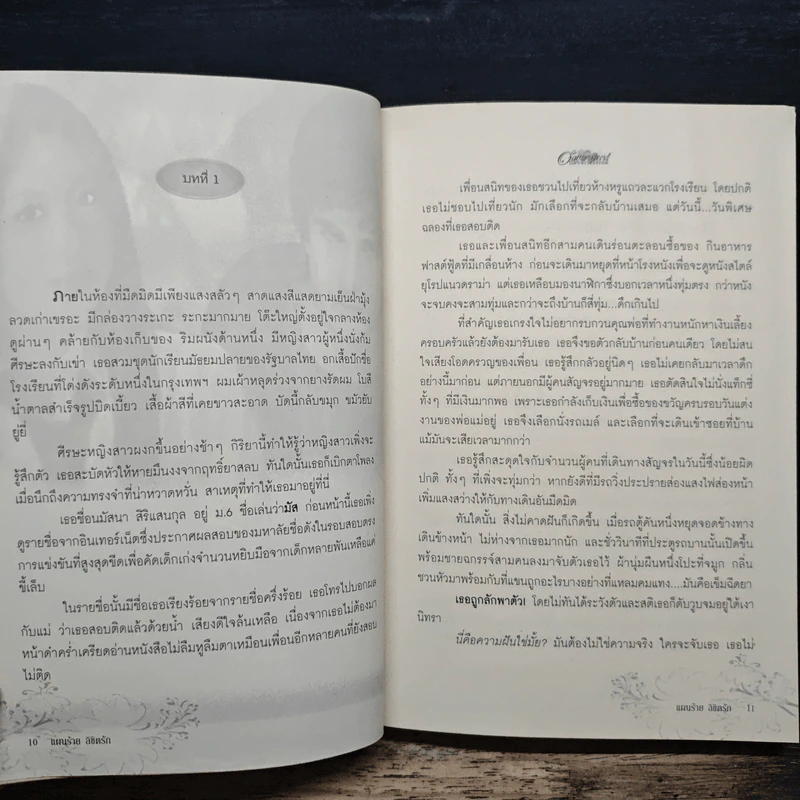 บทที่ 1
ภายในห้องที่มืดมิดมีเพียงแสงสลัวๆ สาดแสงสีแสดยามเย็นฝ่ามุ้ง
ลวดเก่าเขรอะ มีกล่องวางระเกะ ระกะมากมาย โต๊ะใหญ่ตั้งอยู่ใจกลางห้อง
ดูผ่านๆ คล้ายกับห้องเก็บของ ริมผนังด้านหนึ่ง มีหญิงสาวผู้หนึ่งนั่งก้ม
ศีรษะลงกับเข่า เธอสวมชุดนักเรียนมัธยมปลายของรัฐบาลไทย อกเสื้อปักชื่อ
โรงเรียนที่โด่งดังระดับหนึ่งในกรุงเทพฯ ผมเผ้าหลุดร่วงจากยางรัดผม โบสี
น้ำตาลสำเร็จรูปบิดเบี้ยว เสื้อผ้าสีที่เคยขาวสะอาด บัดนี้กลับขมุก ขมัวยับ
ยู่ยี่
ศีรษะหญิงสาวผงกขึ้นอย่างช้าๆ กิริยานี้ทำให้รู้ว่าหญิงสาวเพิ่งจะ
รู้สึกตัว เธอสะบัดหัวให้หายมึนงงจากฤทธิ์ยาสลบ ทันใดนั้นเธอก็เบิกตาโพลง
เมื่อนึกถึงความทรงจำที่น่าหวาดหวั่น สาเหตุที่ทำให้เธอมาอยู่ที่นี่
เธอชื่อนมัสนา สิริแสนกุล อยู่ ม.6 ชื่อเล่นว่ามัส ก่อนหน้านี้เธอเพิ่ง
ดูรายชื่อจากอินเทอร์เน็ตซึ่งประกาศผลสอบของมหาลัยชื่อดังในรอบสอบตรง
การแข่งขันที่สูงสุดขีดเพื่อคัดเด็กเก่งจำนวนหยิบมือจากเด็กหลายพันเหลือแค่
ขี้เล็บ
ในรายชื่อนั้นมีชื่อเธอเรียงร้อยจากรายชื่อครึ่งร้อย เธอโทรไปบอกผล
กับแม่ ว่าเธอสอบติดแล้วด้วยน้ำ เสียงดีใจล้นเหลือ เนื่องจากเธอไม่ต้องมา
หน้าดำคร่ำเครียดอ่านหนังสือไม่ลืมหูลืมตาเหมือนเพื่อนอีกหลายคนที่ยังสอบ
ไม่ติด
10 แผนร้าย ลิขิตรัก
เพื่อนสนิทของเธอชวนไปเที่ยวห้างหรูแถวละแวกโรงเรียน โดยปกติ
เธอไม่ชอบไปเที่ยวนัก มักเลือกที่จะกลับบ้านเสมอ แต่วันนี้...วันพิเศษ
ฉลองที่เธอสอบติด
เธอและเพื่อนสนิทอีกสามคนเดินร่อนตะลอนซื้อของ กินอาหาร
ฟาสต์ฟู้ดที่มีเกลื่อนห้าง ก่อนจะเดินมาหยุดที่หน้าโรงหนังเพื่อจะดูหนังสไตล์
ยุโรปแนวดราม่า แต่เธอเหลือบมองนาฬิกาซึ่งบอกเวลาหนึ่งทุ่มตรง กว่าหนัง
จะจบคงจะสามทุ่มและกว่าจะถึงบ้านก็สี่ทุ่ม...ดึกเกินไป
ที่สำคัญเธอเกรงใจไม่อยากรบกวนคุณพ่อที่ทำงานหนักหาเงินเลี้ยง
ครอบครัวแล้วยังต้องมารับเธอ เธอจึงขอตัวกลับบ้านก่อนคนเดียว โดยไม่สน
ใจเสียงโอดครวญของเพื่อน เธอรู้สึกกลัวอยู่นิดๆ เธอไม่เคยกลับมาเวลาดึก
อย่างนี้มาก่อน แต่ภายนอกมีผู้คนสัญจรอยู่มากมาย เธอตัดสินใจไม่นั่งแท็กซี่
ทั้งๆ ที่มีเงินมากพอ เพราะเธอกำลังเก็บเงินเพื่อซื้อของขวัญครบรอบวันแต่ง
งานของพ่อแม่อยู่ เธอจึงเลือกนั่งรถเมล์ และเลือกที่จะเดินเข้าซอยที่บ้าน
แม้มันจะเสียเวลามากกว่า
เธอรู้สึกสะดุดใจกับจำนวนผู้คนที่เดินทางสัญจรในวันนี้ซึ่งน้อยผิด
ปกติ ทั้งๆ ที่เพิ่งจะทุ่มกว่า หากยังดีที่มีรถวิ่งประปรายส่องแสงไฟส่องหน้า
เพิ่มแสงสว่างให้กับทางเดินอันมืดมิด
ทันใดนั้น สิ่งไม่คาดฝันก็เกิดขึ้น เมื่อรถตู้คันหนึ่งหยุดจอดข้างทาง
เดินข้างหน้า ไม่ห่างจากเธอมากนัก และชั่ววินาทีที่ประตูรถบานนั้นเปิดขึ้น
พร้อมชายฉกรรจ์สามคนลงมาจับตัวเธอไว้ ผ้านุ่มผืนหนึ่งโปะที่จมูก กลิ่น
ชวนหัวมาพร้อมกับที่แขนถูกอะไรบางอย่างที่แหลมคมแทง....มันคือเข็มฉีดยา
เธอถูกลักพาตัว! โดยไม่ทันได้ระวังตัวและสติเธอก็ดับวูบจมอยู่ใต้เงา
นิทรา
นี่คือความฝันใช่มั้ย? มันต้องไม่ใช่ความจริง ใครจะจับเธอ เธอไม่
แผนร้าย ลิขิตรัก 11